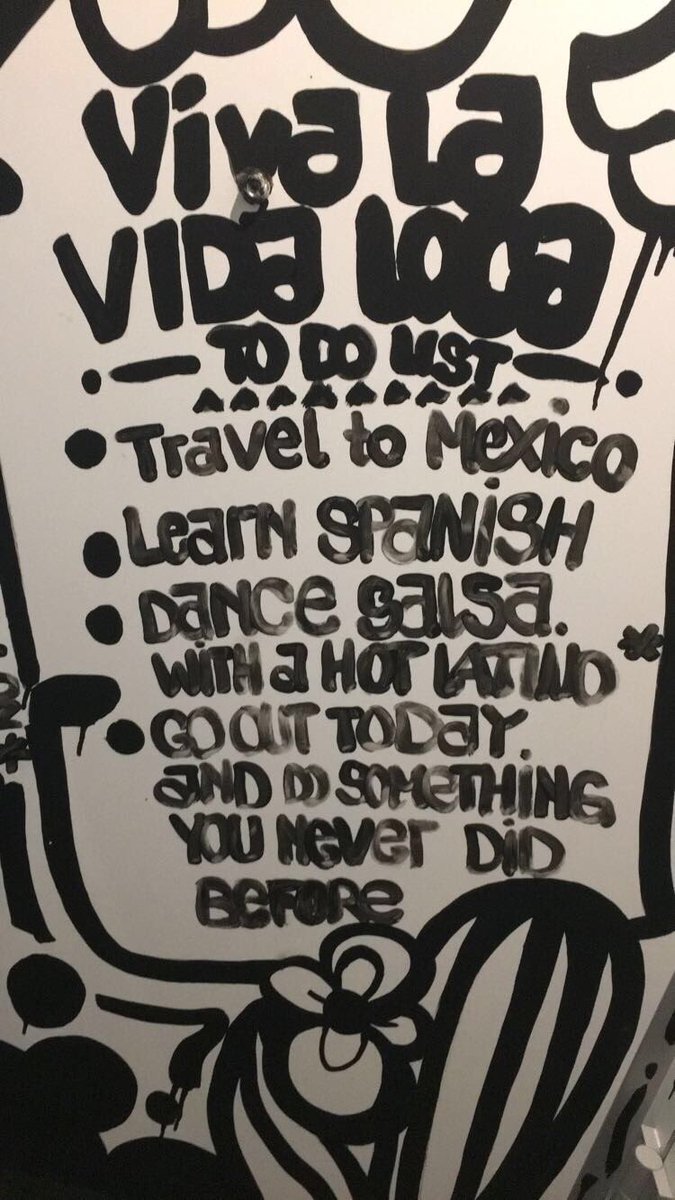 Viva La
VIDa LOCa
TO DO LIST
Travel to Mexico
Learn SPaNiSH
DaNce Salsa.
WITH a HOT LATINO
GO OUT TODaY.
aND DO SOMeTHiNG
YOU NeVer DiD
BeFORe